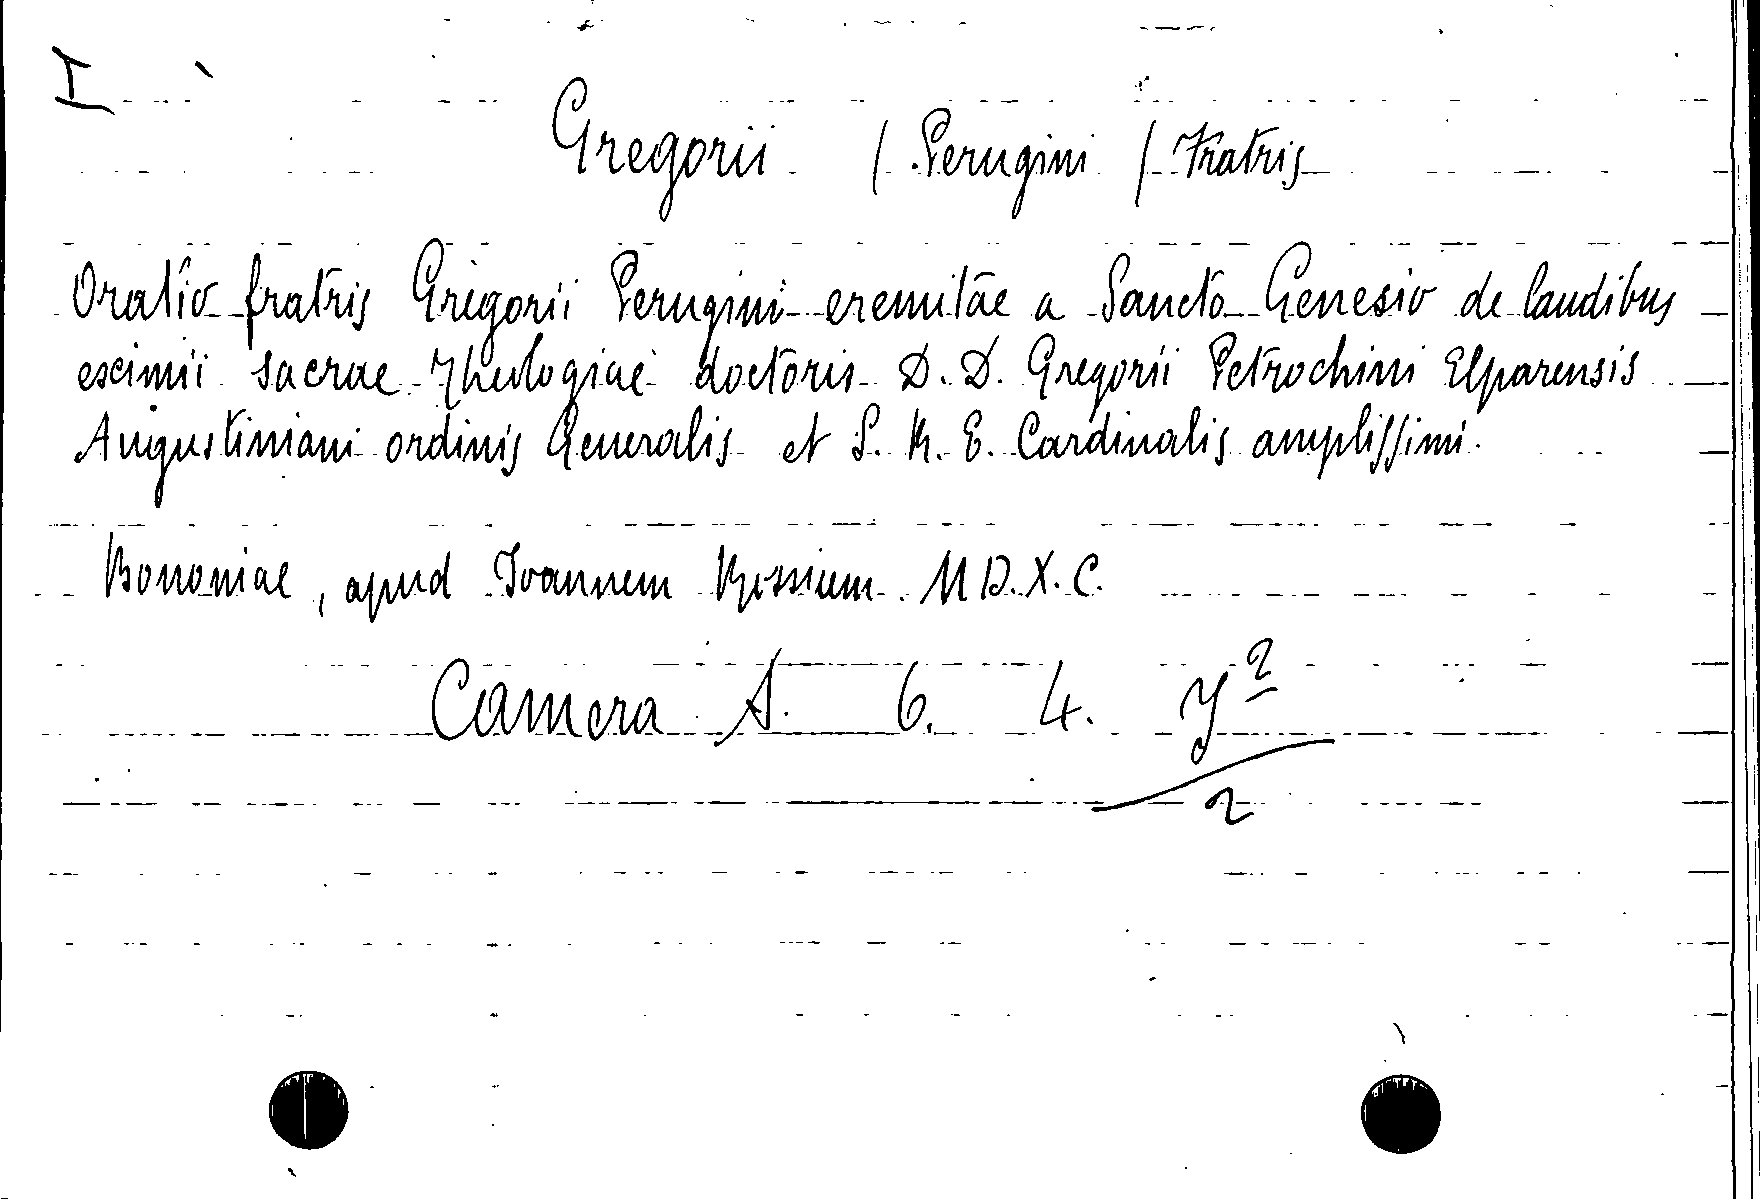 I
Gregorii ( Perugini ( Fratris
Oratio fratris Gregorii Perugini eremitae a Sancto Genesio de laudibus
eximii sacrae Theologiae doctoris D. D. Gregorii Petrochini Elparensis
Augustiniani ordinis Generalis et S. R. E. Cardinalis amplissimi.
Bononiae, apud Ioannem Rossium. MD.X.C.
Camera A. 6. 4. y 2
2